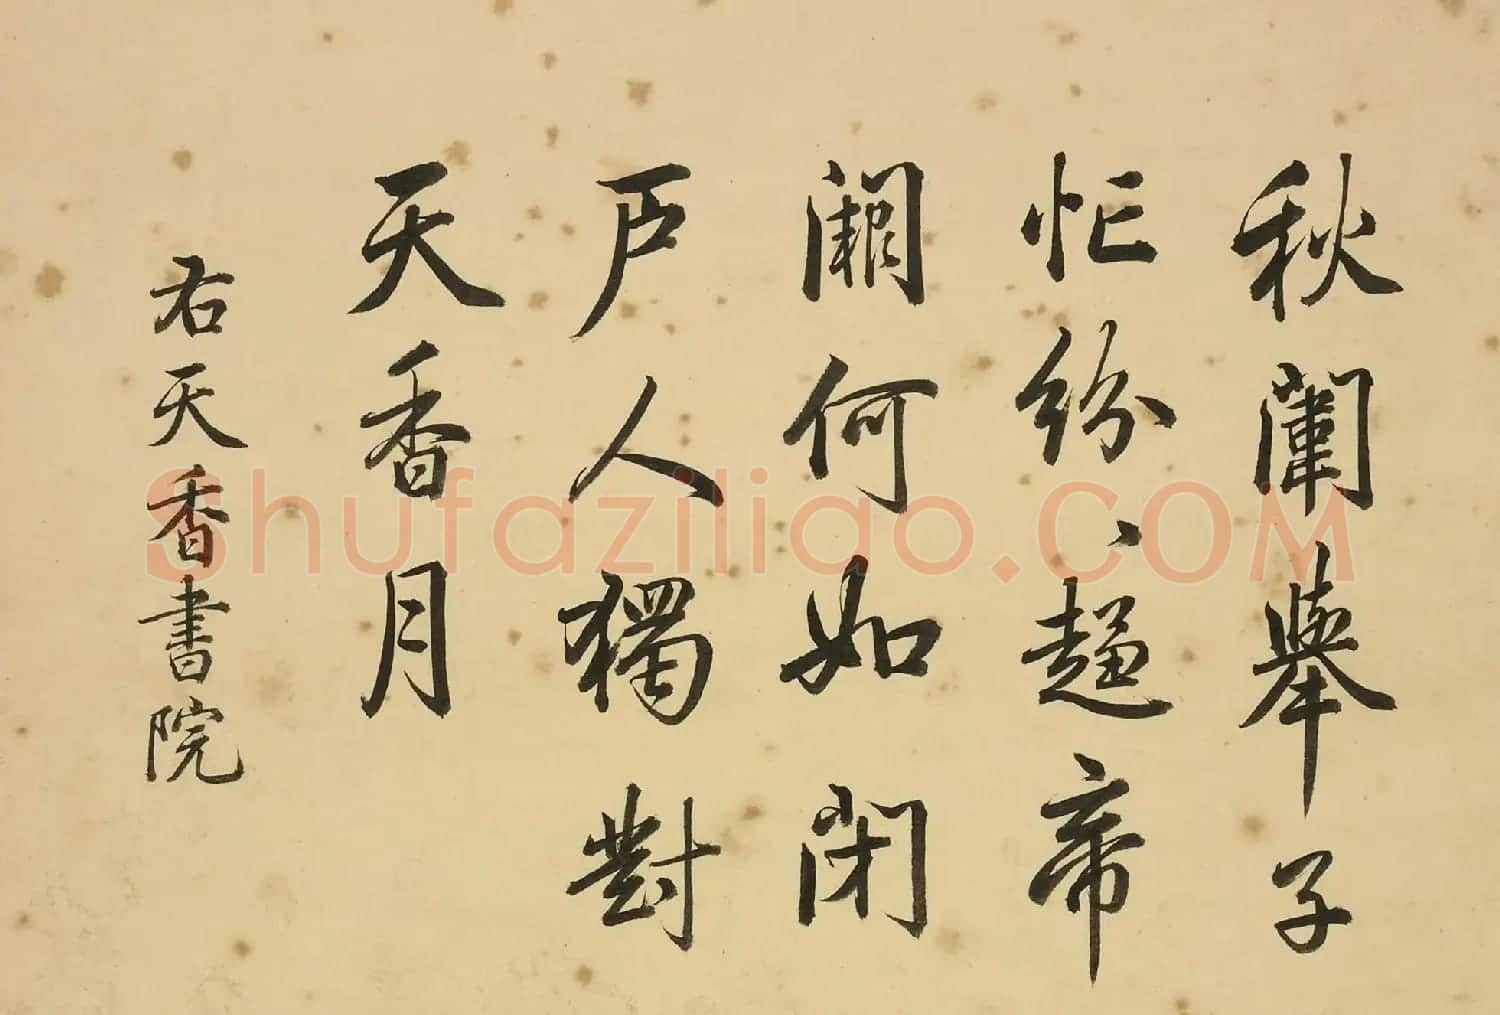 秋闈舉子
忙紛、趨帝
闕何如閉
戶人獨對
天香月
右天香書院
Shufaziliao.COM